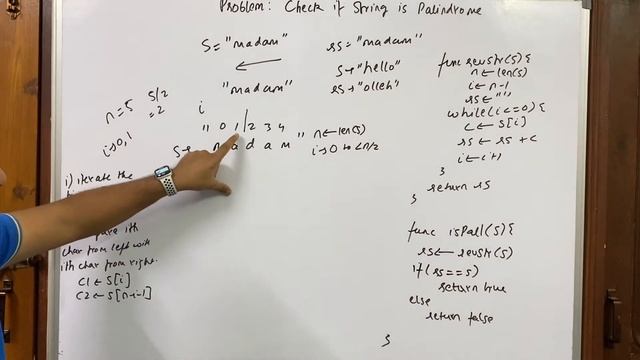 Problem: Check if String is Palindrome
S = "madam"
rs = "madam"
"madam"
S → "hello"
rs → "olleh"
n = 5
5/2
= 2
i → 0, 1
i
" 0 1 / 2 3 4 "
n ← len(s)
S →
m a d a m
i → 0 to < n/2
1) iterate the
ith
char from left with
ith char from right.
C1 ← S[i]
C2 ← S[n-i-1]
func revStr(S){
n ← len(s)
i ← n-1
rs ← ""
while(i<=0){
c ← S[i]
rs ← rs + c
i ← i+1
}
return rs
}
func isPali(S){
rs ← revStr(S)
if(rs==s)
return true
else
return false
}